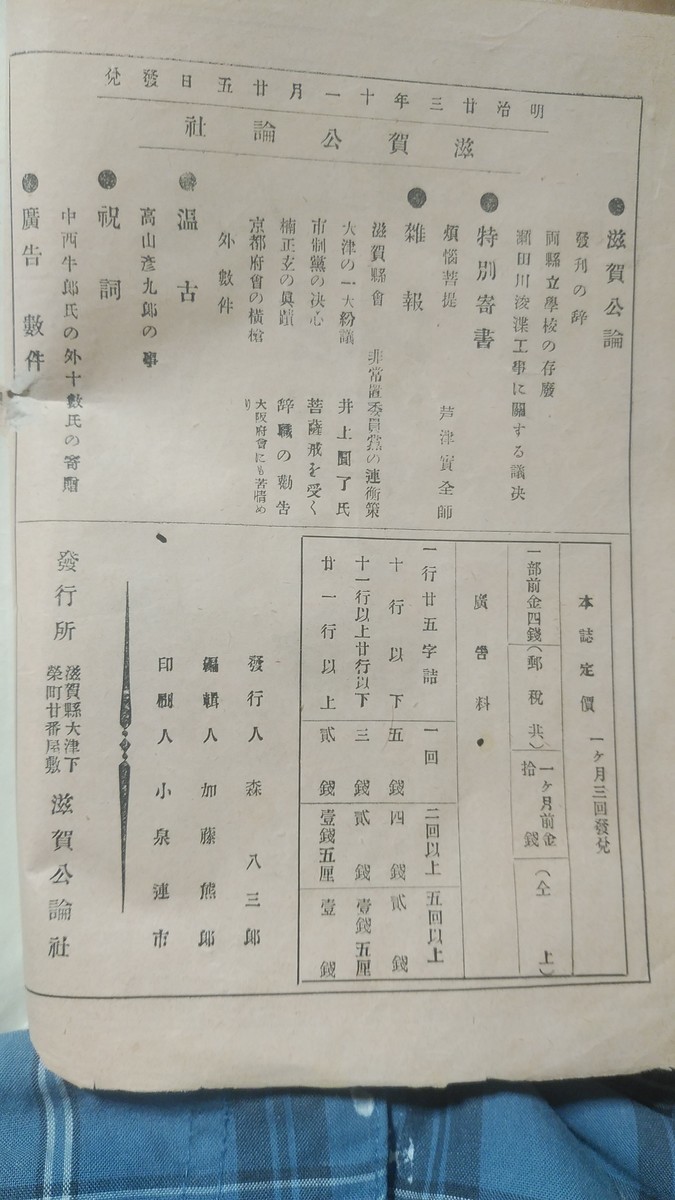 明治廿三年十一月廿五日發兌
滋賀公論社
●滋賀公論
發刊の辞
両縣立學校の存廢
瀬田川浚渫工事に關する議决
●特別寄書
煩惱菩提 芦津實全師
●雜報
滋賀縣會 非常置委員黨の連衡策
大津の一大紛議 井上圓了氏
市制黨の决心 菩薩戒を受く
楠正玄の眞蹟 辞職の勸告
京都府會の横槍 大阪府會にも苦情あり
外數件
●温古
高山彦九郎の事
●祝詞
中西牛郎氏の外十數氏の寄贈
●廣告 數件
本誌定價 一ケ月三回發兌
一部前金四錢(郵税共) 一ケ月前金拾錢 (仝上)
廣告料
一行廿五字詰 一回 二回以上 五回以上
十行以下 五錢 四錢 貳錢
十一行以上廿行以下 三錢 貳錢 壹錢五厘
廿一行以上 貳錢 壹錢五厘 壹錢
發行人 森八三郎
編輯人 加藤熊郎
印刷人 小泉連市
發行所 滋賀縣大津下榮町廿番屋敷 滋賀公論社